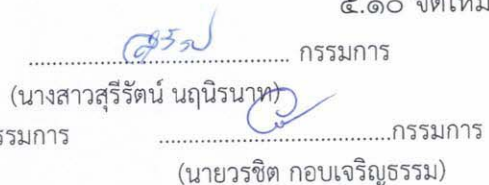 ๕.๑๐ จัดให้มี
............................ กรรมการ
(นางสาวสุรีรัตน์ นฤนิรนาท)
รรมการ ............................กรรมการ
(นายวรชิต กอบเจริญธรรม)